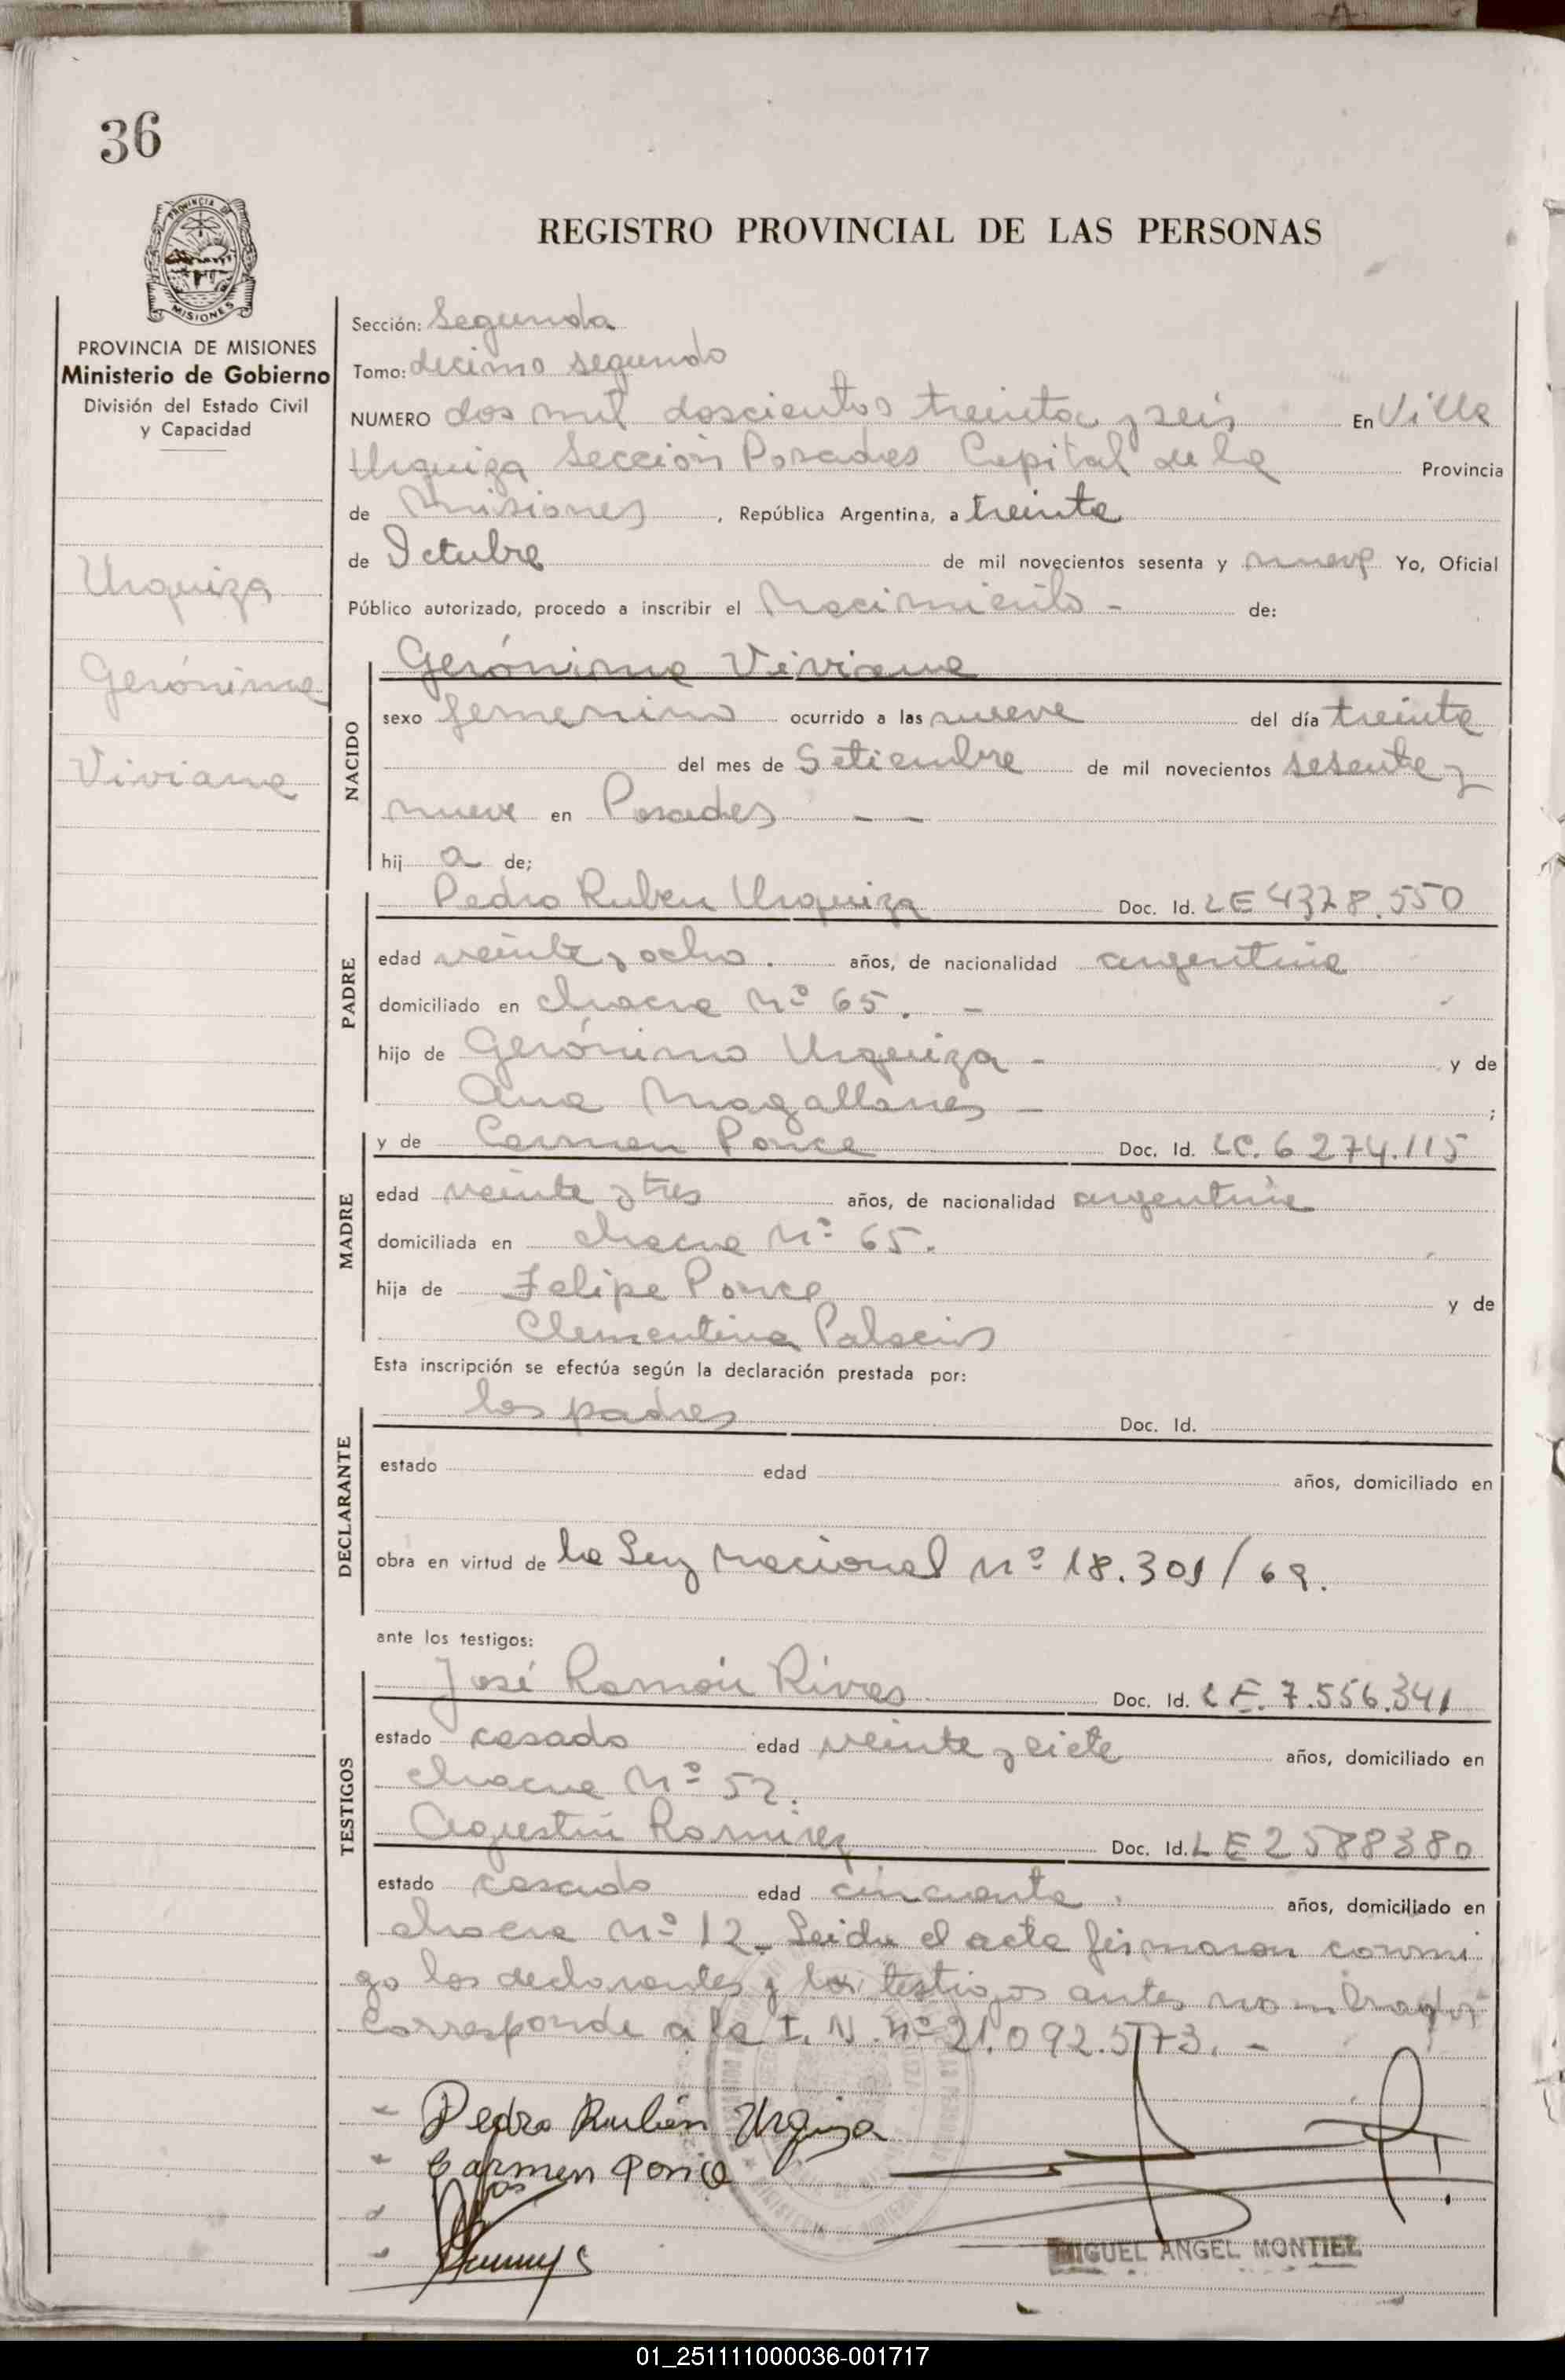 36
PROVINCIA DE
MISIONES
PROVINCIA DE MISIONES
Ministerio de Gobierno
División del Estado Civil
y Capacidad
Urquiza
Gerónima
Viviana
REGISTRO PROVINCIAL DE LAS PERSONAS
Sección: Segunda
Tomo: decimo segundo
NUMERO dos mil doscientos treinta y seis En Villa
Urquiza Sección Posadas Capital de la Provincia
de Misiones, República Argentina, a treinta
de Octubre de mil novecientos sesenta y nueve Yo, Oficial
Público autorizado, procedo a inscribir el Nacimiento - de:
NACIDO
Gerónima Viviana
sexo femenino ocurrido a las nueve del día treinta
del mes de Setiembre de mil novecientos sesenta y
nueve en Posadas - -
hij a de;
PADRE
Pedro Ruben Urquiza Doc. Id. LE 4328.550
edad veinte y ocho. años, de nacionalidad argentina
domiciliado en chacra Nº 65. -
hijo de Gerónimo Urquiza - y de
Ana Magallanes - ;
MADRE
y de Carmen Ponce Doc. Id. LC. 6 274.115
edad veinte y tres años, de nacionalidad argentina
domiciliada en chacra Nº 65.
hija de Felipe Ponce y de
Clementina Palacios
Esta inscripción se efectúa según la declaración prestada por:
DECLARANTE
los padres Doc. Id.
estado edad años, domiciliado en
obra en virtud de la Ley Nacional Nº 18.301/69.
ante los testigos:
TESTIGOS
José Ramón Rivas Doc. Id. LE. 7.556.341
estado casado edad veinte y siete años, domiciliado en
chacra Nº 52.
Agustín Ramirez Doc. Id. LE 2588380
estado casado edad cincuenta. años, domiciliado en
chacra Nº 12 - Leida el acta firmaron conmi
go los declarantes y los testigos antes nombrados
Corresponde a la I. N. Nº 21.092.573. -
Pedro Rubén Urquiza
Carmen Ponce
MIGUEL ANGEL MONTIEL
01_251111000036-001717